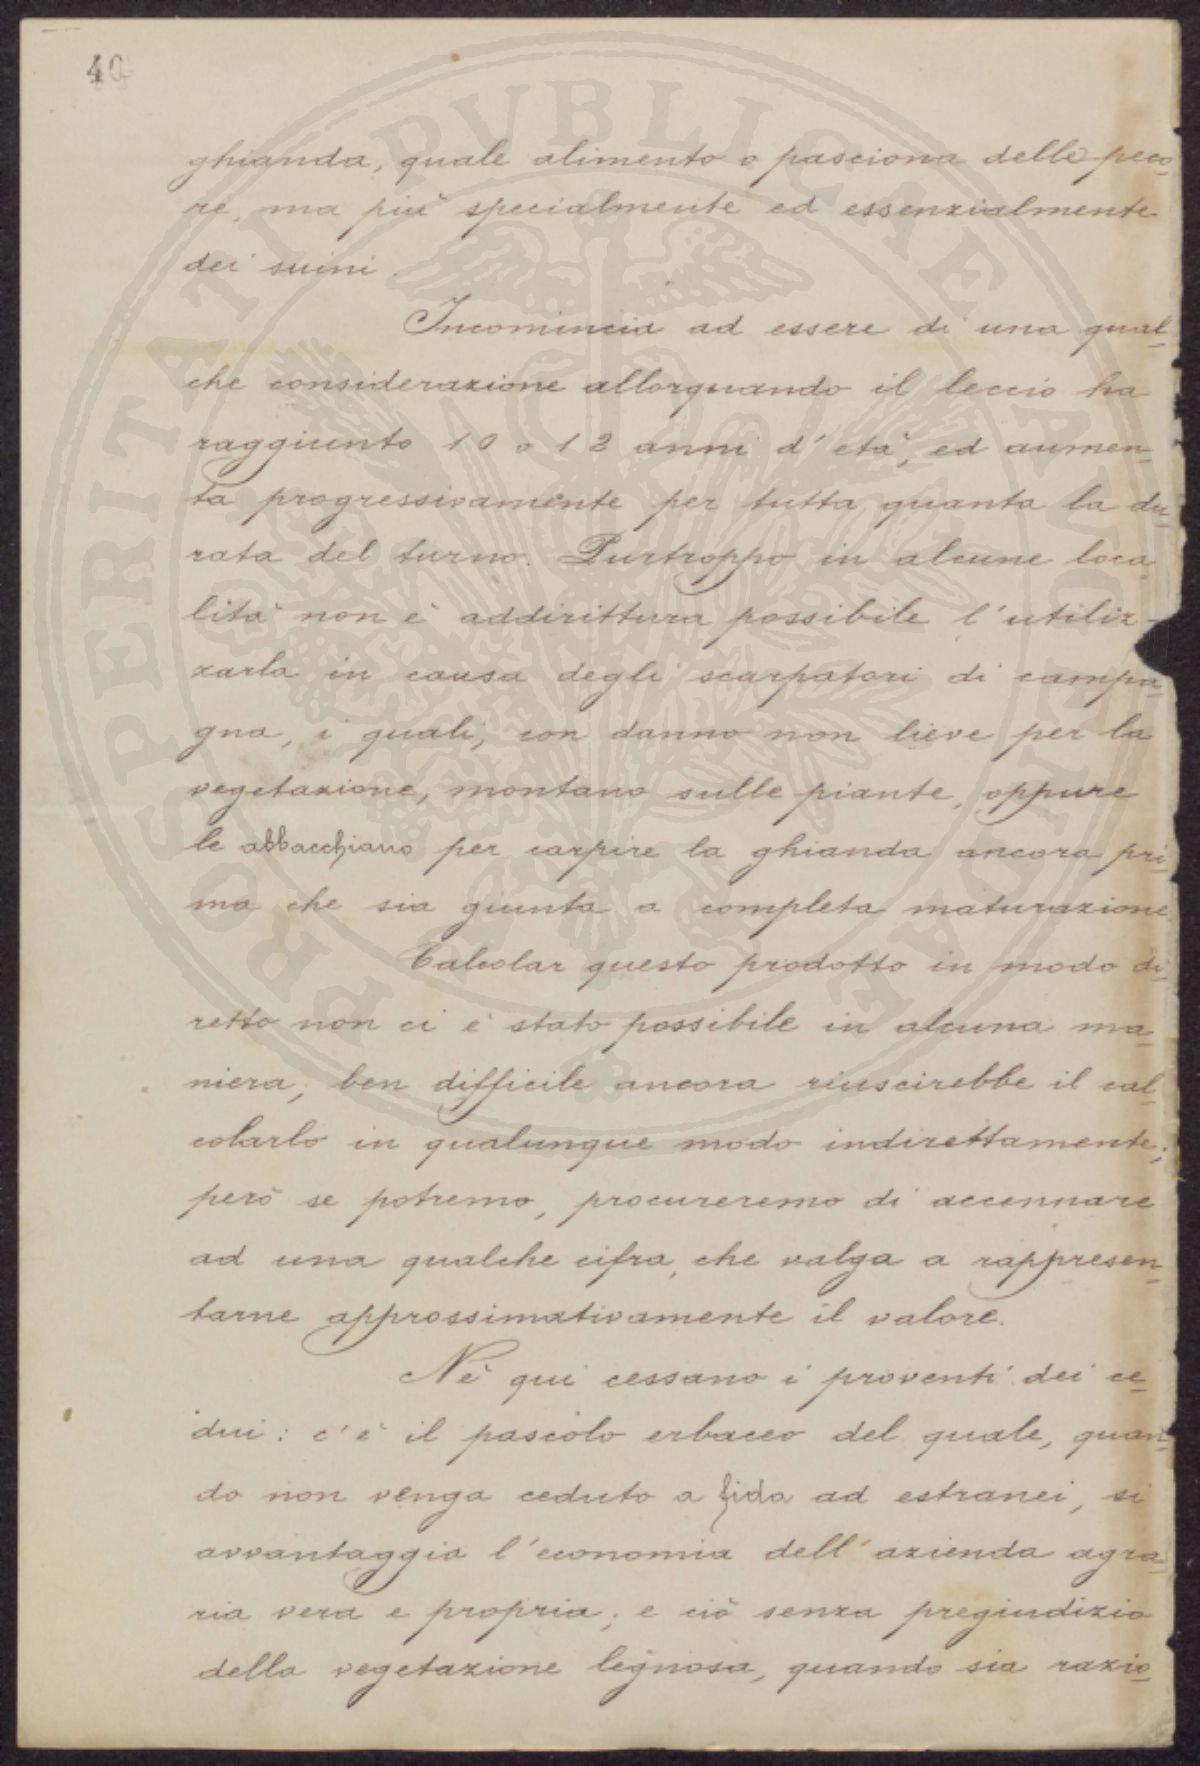 40
ghianda, quale alimento o pasciona delle peco-
re, ma più specialmente ed essenzialmente
dei suini.
Incomincia ad essere di una qual-
che considerazione allorquando il leccio ha
raggiunto 10 o 12 anni d'età, ed aumen-
ta progressivamente per tutta quanta la du-
rata del turno. Purtroppo in alcune loca
lità non è addirittura possibile l'utiliz-
zarla in causa degli scarpatori di campa-
gna, i quali, con danno non lieve per la
vegetazione, montano sulle piante, oppure
le abbacchiano per carpire la ghianda ancora pri-
ma che sia giunta a completa maturazione
Calcolar questo prodotto in modo di-
retto non ci è stato possibile in alcuna ma-
niera; ben difficile ancora riuscirebbe il cal-
colarlo in qualunque modo indirettamente;
però se potremo, procureremo di accennare
ad una qualche cifra, che valga a rappresen-
tarne approssimativamente il valore.
Nè qui cessano i proventi dei ce-
dui: c'è il pascolo erbaceo del quale, quan-
do non venga ceduto a fida ad estranei, si
avvantaggia l'economia dell'azienda agra-
ria vera e propria; e ciò senza pregiudizio
della vegetazione legnosa, quando sia razio-
PROSPERITATI PUBLICAE AUGENDAE